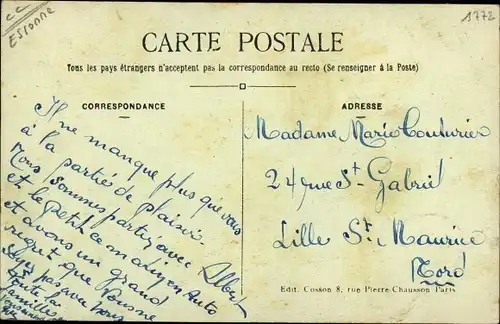 cc
Essonne
1772
CARTE POSTALE
Tous les pays étrangers n'acceptent pas la correspondance au recto (Se renseigner à la Poste)
CORRESPONDANCE
Il ne manque plus que vous
à la partiés de plaisir
Nous Sommes partis avec
et le petit en Auto
et avons un grand
regret que
pas avec vous
toute la
famille
Albert
ADRESSE
Madame Marie Couturier
24 rue St. Gabriel
Lille St. Maurice
Nord
Edit. Cosson 8, rue Pierre-Chausson Paris